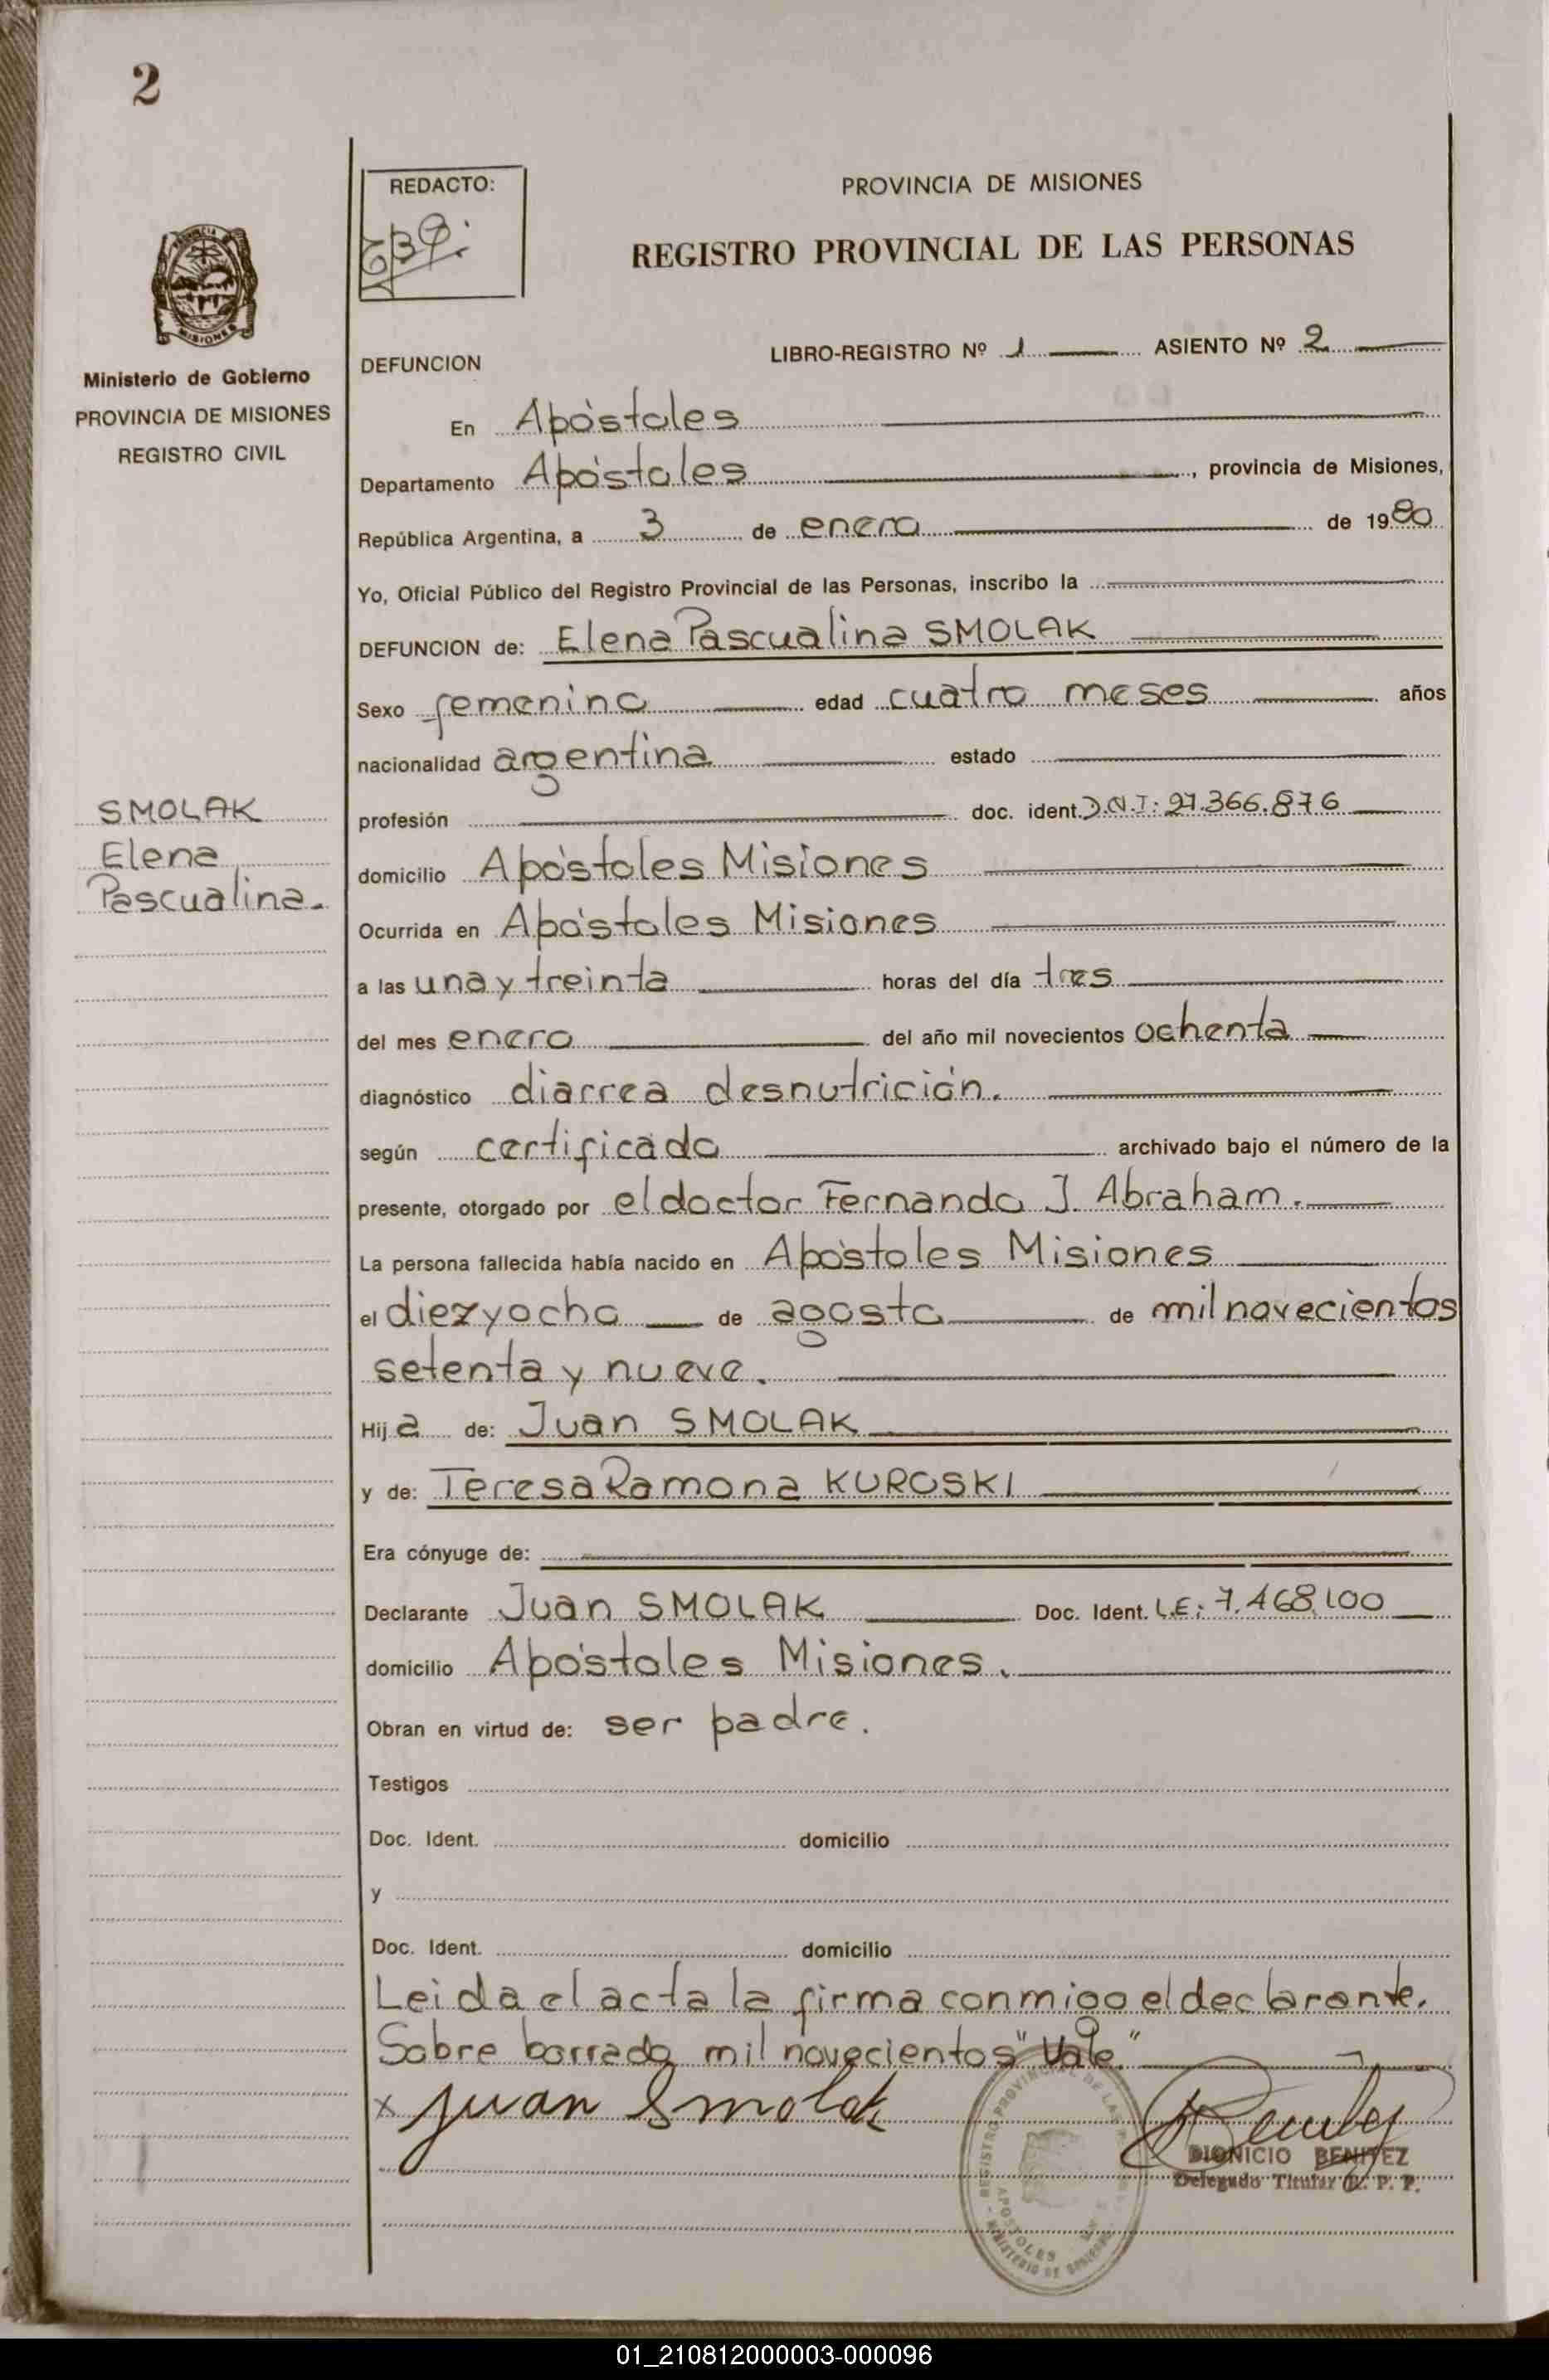 2
REDACTO:
PROVINCIA DE MISIONES
REGISTRO PROVINCIAL DE LAS PERSONAS
Ministerio de Gobierno
PROVINCIA DE MISIONES
REGISTRO CIVIL
DEFUNCION
LIBRO-REGISTRO Nº 1 ASIENTO Nº 2
En Apóstoles
Departamento Apóstoles, provincia de Misiones,
República Argentina, a 3 de enero de 1980
Yo, Oficial Público del Registro Provincial de las Personas, inscribo la
DEFUNCION de: Elena Pascualina SMOLAK
Sexo femenino edad cuatro meses años
nacionalidad argentina estado
SMOLAK
Elena
Pascualina.
profesión doc. ident. D.N.I: 27.366.876
domicilio Apóstoles Misiones
Ocurrida en Apóstoles Misiones
a las una y treinta horas del día tres
del mes enero del año mil novecientos ochenta
diagnóstico diarrea desnutrición.
según certificado archivado bajo el número de la
presente, otorgado por el doctor Fernando J. Abraham.
La persona fallecida había nacido en Apóstoles Misiones
el diez y ocho de agosto de mil novecientos
setenta y nueve.
Hija de: Juan SMOLAK
y de: Teresa Ramona KUROSKI
Era cónyuge de:
Declarante Juan SMOLAK Doc. Ident. L.E: 7.468.100
domicilio Apóstoles Misiones.
Obran en virtud de: ser padre.
Testigos
Doc. Ident. domicilio
y
Doc. Ident. domicilio
Leida el acta la firma conmigo el declarante.
Sobre borrado mil novecientos "Vale."
x Juan Smolak
DIONICIO BENITEZ
Delegado Titular R. P. P.
REGISTRO PROVINCIAL DE LAS
APOSTOLES
MINISTERIO DE GOBIERNO
01_210812000003-000096